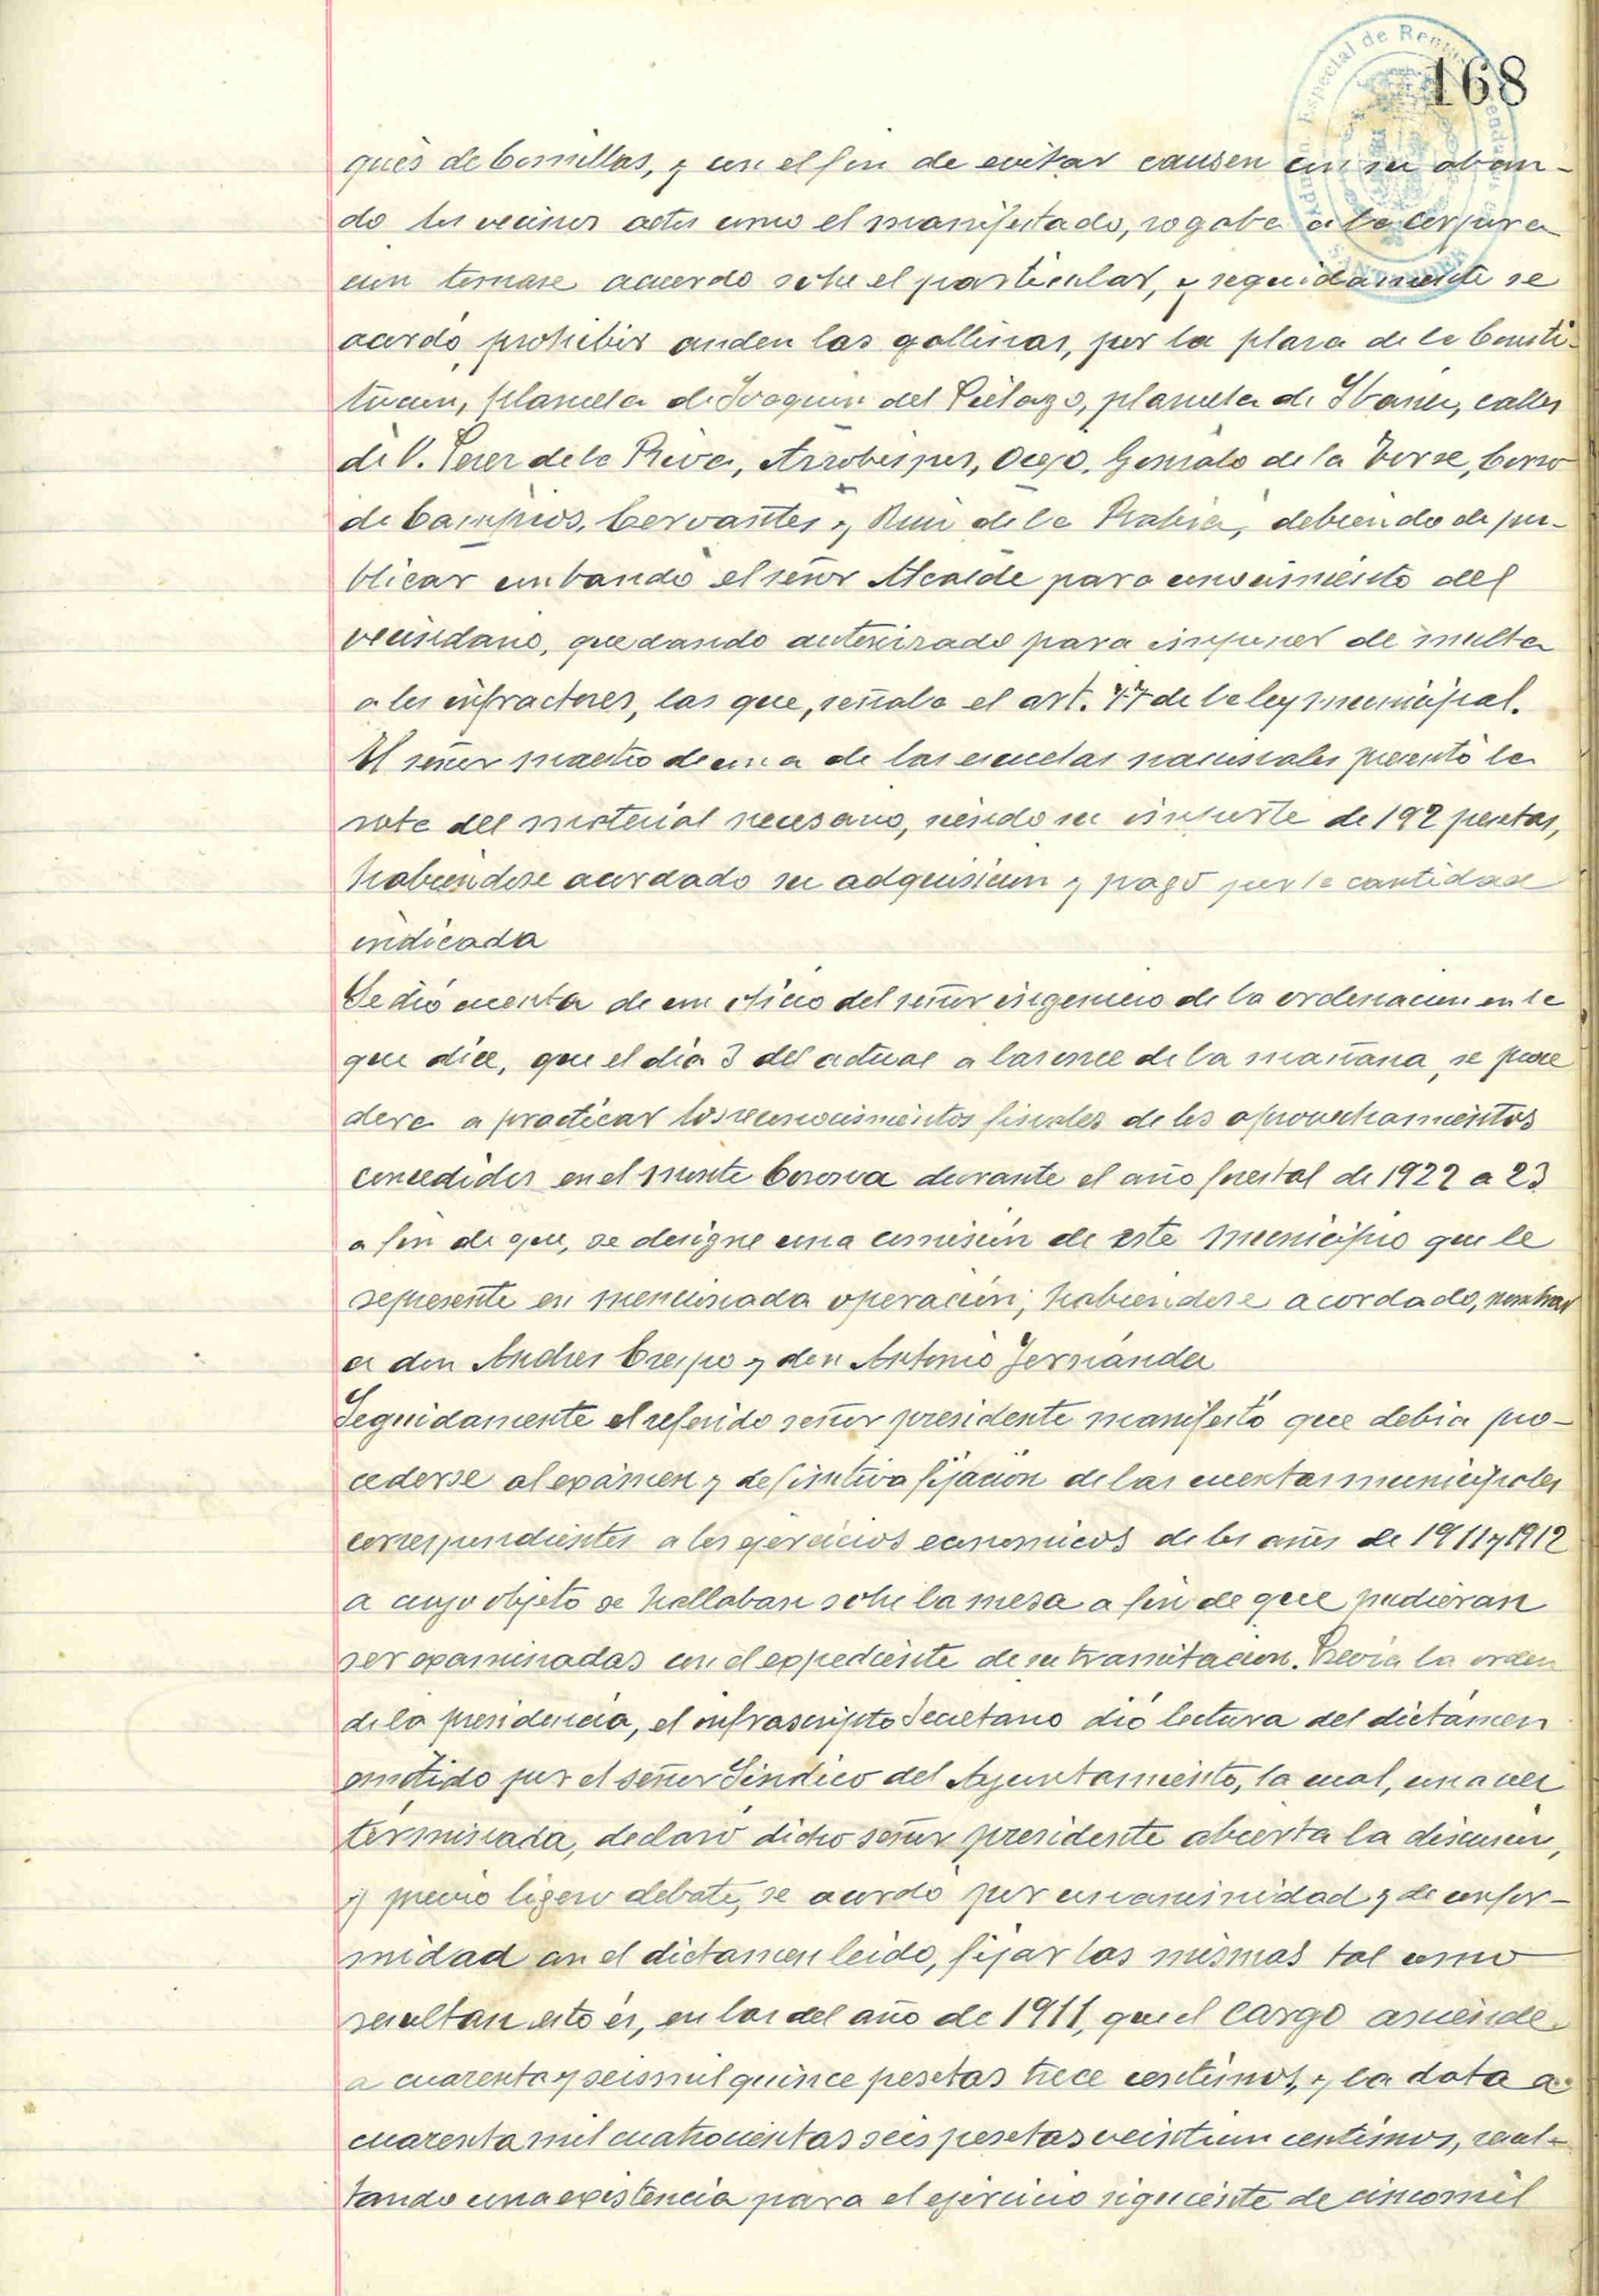 168
qués de Comillas, y con el fin de evitar causen en su aban-
do los vecinos actos como el manifestado, rogaba a la
con tomase acuerdo sobre el particular, y seguidamente se
acordó prohibir anden las gallinas, por la plaza de la Consti-
tucion, plazuela de Joaquin del Piélago, plazuela de Ibañez, calles
de V. Perez de la Riva, Arzobispos, Ocejo, Gonzalo de la Torre, Corro
de Campios, Cervantes y Ruiz de la Rabia, debiendo de pu-
blicar un bando el señor Alcalde para conocimiento del
vecindario, quedando autorizado para imponer de multa
a los infractores, las que, señala el art. 77 de la ley municipal.
El señor maestro de una de las escuelas nacionales presentó la
nota del material necesario, siendo su importe de 192 pesetas,
habiendose acordado su adquisicion y pago por la cantidad
indicada
Se dió cuenta de un oficio del señor ingeniero de la ordenacion en le
que dice, que el dia 3 del actual a las once de la mañana, se proce
dera a practicar los reconocimientos finales de los aprovechamientos
concedidos en el monte Corona durante el año forestal de 1922 a 23
a fin de que, se designe una comisión de este municipio que le
represente en mencionada operación; habiendose acordado, nombrar
a don Andres Crespo y don Antonio Fernández
Seguidamente el referido señor presidente manifestó que debia pro-
cederse al exámen y definitiva fijación de las cuentas municipales
correspondientes a los ejercicios economicos de los años de 1911 y 1912
a cuyo objeto se hallaban sobre la mesa a fin de que pudieran
ser examinadas con el expediente de su tramitacion. Previa la orden
de la presidencia, el infrascripto Secretario dió lectura del dictámen
emitido por el señor Sindico del Ayuntamiento, la cual, una vez
terminada, declaró dicho señor presidente abierta la discusion,
y previo ligero debate, se acordó por unanimidad y de confor-
midad con el dictamen leido, fijar las mismas tal como
resultan esto es, en las del año de 1911, que el cargo asciende
a cuarenta y seis mil quince pesetas trece centimos, y la data a
cuarenta mil cuatrocientas seis pesetas veintiun centimos, resul-
tando una existencia para el ejercicio siguiente de cinco mil